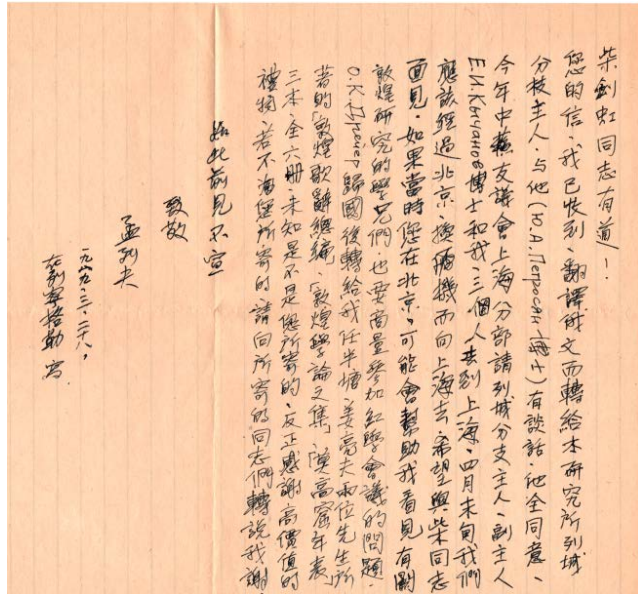 柴劍虹同志有道！
您的信、我已收到、翻譯俄文而轉給本研究所列城
分枝主人、与他(Ю.А.Петросян博士)有談話、他全同意、
今年中蘇友議會上海分部請列城分支主人、副主人
Е.И.Кычанов博士和我、三個人去到上海、四月末旬我們
應該經過北京、換飛機而向上海去、希望與柴同志
面見、如果當時您在北京、可能會幫助我看見有關
敦煌研究的學兄們、也要商量參加紅學會議的問題、
О.К.Дрейер歸國後轉給我任半塘、姜亮夫兩位先生所
著的「敦煌歌辭總編」、「敦煌學論文集」、「莫高窟年表」
三本、全六冊、未知是不是您所寄的、反正感謝高價值的
禮物、若不海堡所寄的請向所寄的同志們轉說我謝
如此前見不宣
致敬
孟列夫
一九八九、三、二十八、
在列寧格勒 寫